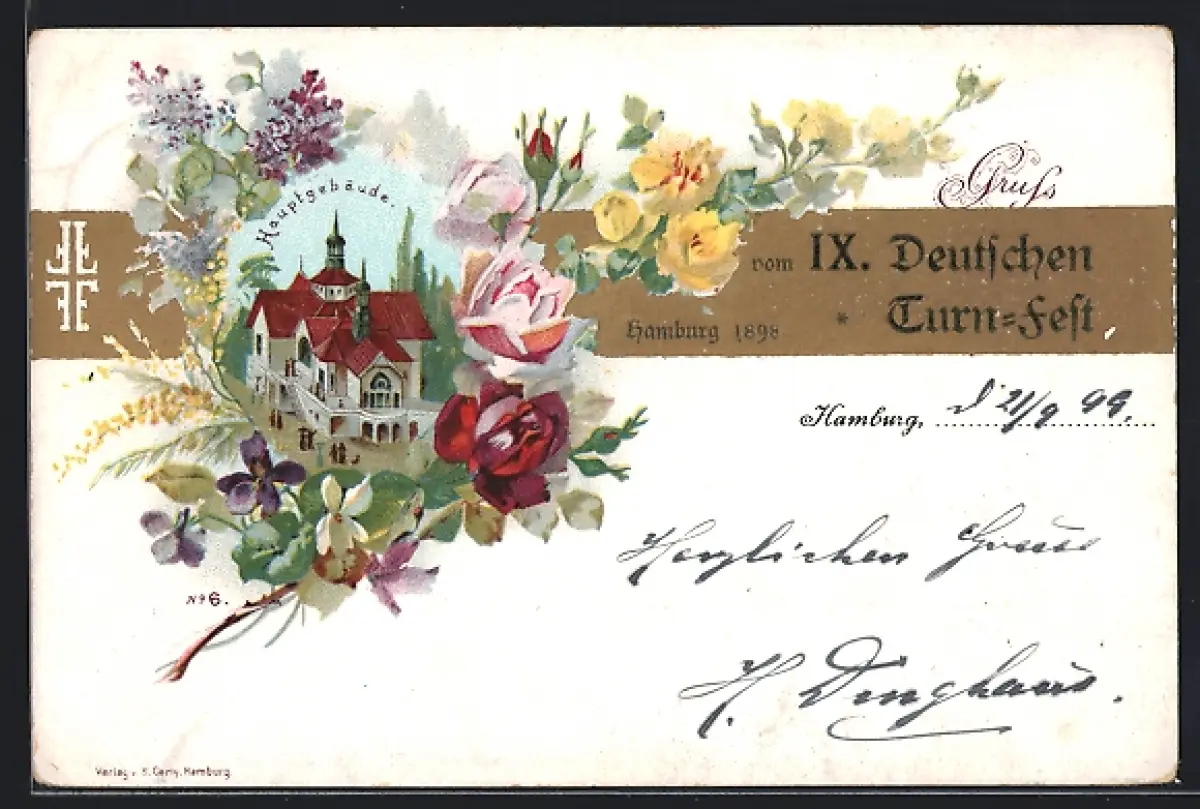 Hauptgebäude.
Gruſs
vom IX. Deutſchen
Turn=Feſt
Hamburg 1898 *
Hamburg, d 21/9 99.
Herzlichen Gruss
H. Dinghaus.
№ 6.
Verlag v. Hamburg
FF
FF